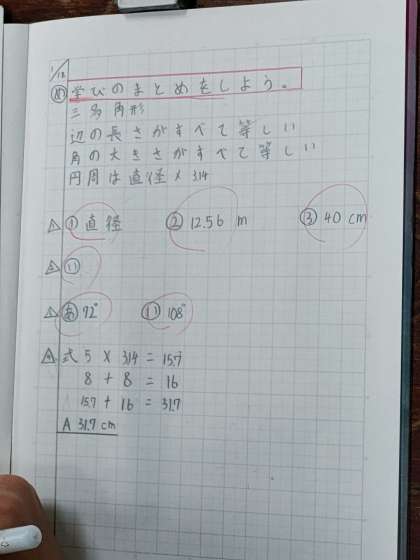 1/12
め 学びのまとめをしよう。
三多角形
辺の長さがすべて等しい
角の大きさがすべて等しい
円周は直径×3.14
① 直径 ② 12.56 m ③ 40 cm
い
あ 72° い 108°
式 5 × 3.14 = 15.7
8 + 8 = 16
15.7 + 16 = 31.7
A 31.7 cm